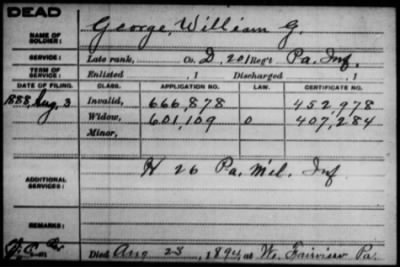 DEAD
NAME OF SOLDIER: George, William G.
SERVICE: Late rank, Co. D, 201 Reg't Pa. Inf.
TERM OF SERVICE: Enlisted , 1 Discharged , 1
DATE OF FILING. CLASS. APPLICATION NO. LAW. CERTIFICATE NO.
1888, Aug, 3 Invalid, 666,878 452,978
Widow, 601,109 0 407,284
Minor,
ADDITIONAL SERVICES: H 26 Pa. Mil. Inf
REMARKS:
Died Aug 23, 1894, at W. Fairview Pa.